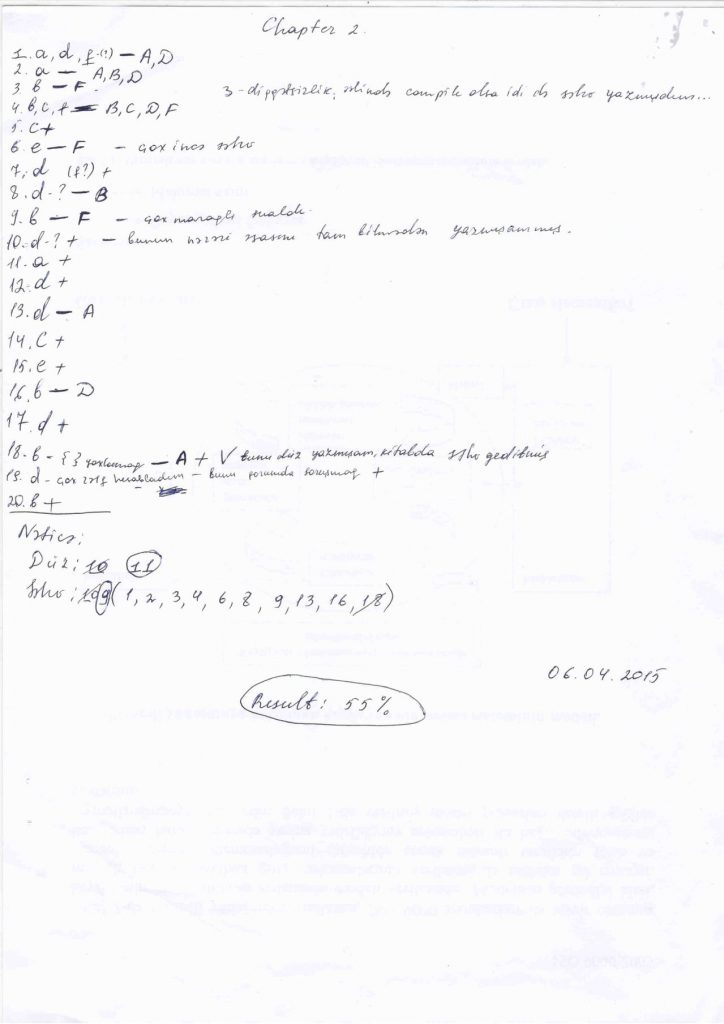 Chapter 2.
1. a, d, f (?) — A, D
2. a — A, B, D
3. b — F 3 - diqqətsizlik, əlində compile olsa idi də səhv yazmışdın...
4. b, c, f — B, C, D, F
5. c +
6. e — F - çox incə səhv
7. d (f?) +
8. d - ? — B
9. b — F - çox maraqlı sualdı.
10. d - ? + - bunun nəzəri əsasını tam bilmədən yazmışammış.
11. a +
12. d +
13. d — A
14. c +
15. e +
16. b — D
17. d +
18. b - { } yoxlamaq — A + V bunu düz yazmışam, kitabda səhv gedibmiş
19. d - çox - bunu forumda soruşmaq +
20. b +
Nəticə:
Düz: 10 11
Səhv: 10 9 (1, 2, 3, 4, 6, 8, 9, 13, 16, 18)
06.04.2015
Result: 55%